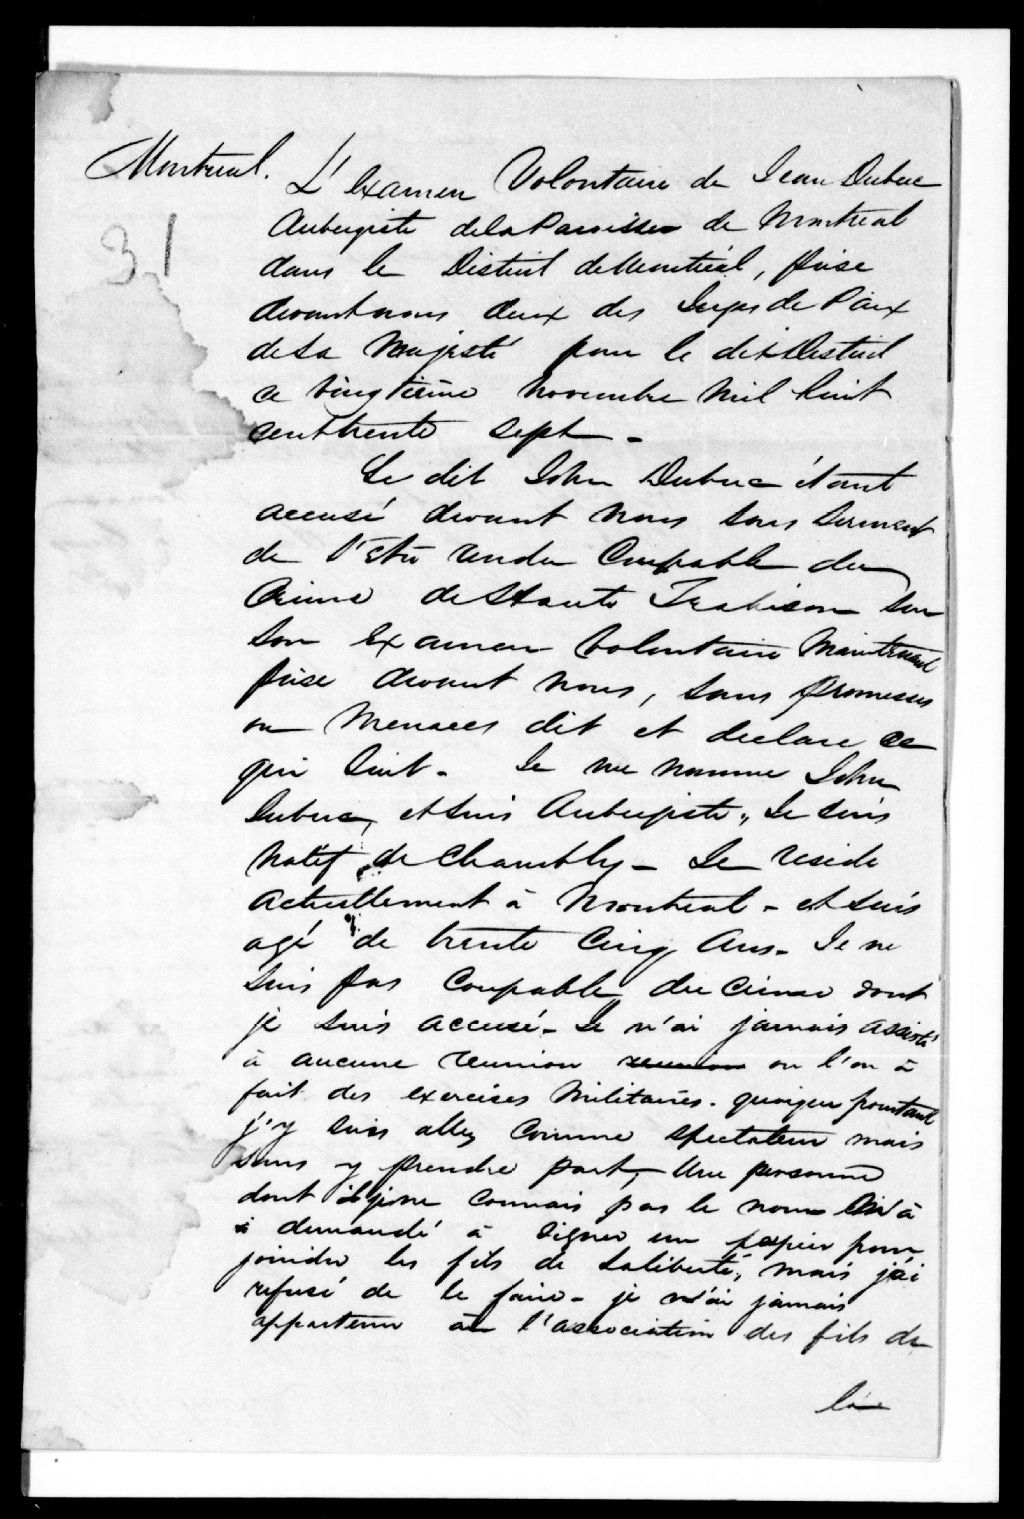 Montreal.
31
L'examen Volontaire de Jean Dubuc
Aubergiste de la Paroisse de Montreal
dans le District de Montréal, prise
devant nous deux des Juges de Paix
de Sa Majesté pour le dit District
ce vingtième novembre mil huit
cent trente sept -
Le dit John Dubuc étant
accusé devant nous sous serment
de s'être rendu Coupable du
Crime de Haute Trahison sur
son Examen Volontaire Maintenant
prise devant nous, sans promesses
ou Menaces dit et declare ce
qui suit - Je me nomme John
Dubuc, et suis Aubergiste, Je suis
natif de Chambly - Je reside
actuellement à Montreal - et suis
agé de trente Cinq Ans - Je ne
suis pas Coupable du Crime dont
je suis accusé - Je n'ai jamais assisté
à aucune reunion reunion ou l'on à
fait des exercises Militaires. quoique pourtant
j'y suis allez comme spectateur mais
sans y prendre part, - Une personne
dont je ne connais pas le nom M'à
demandé à signer un papier pour
joindre les fils de la liberté, mais j'ai
refusé de le faire - je n'ai jamais
appartenu à l'association des fils de
la